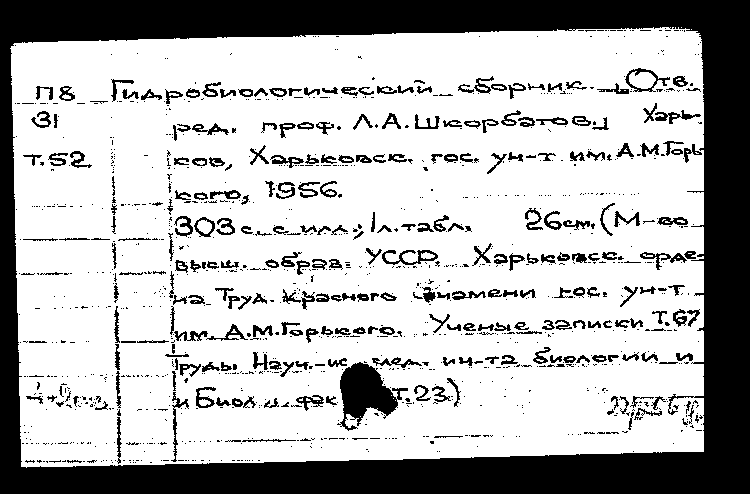 П8 Гидробиологический сборник. [Отв.
31 ред. проф. Л.А.Шкорбатов.] Харь-
Т.52 ков, Харьковск. гос. ун-т им. А.М.Горь-
кого, 1956.
303 с. с илл.; 1л.табл. 26см. (М-во
высш. образ. УССР. Харьковск. орде-
на Труд. Красного Знамени гос. ун-т
им. А.М.Горького. Ученые записки Т.67
Труды Науч.-исслед. ин-та биологии и
и Биол. фак Т.23)